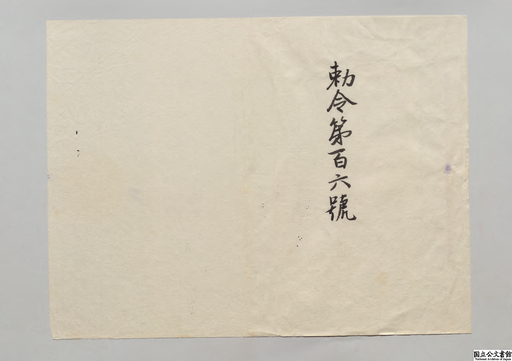 勅令第百六號
国立公文書館
National Archives of Japan